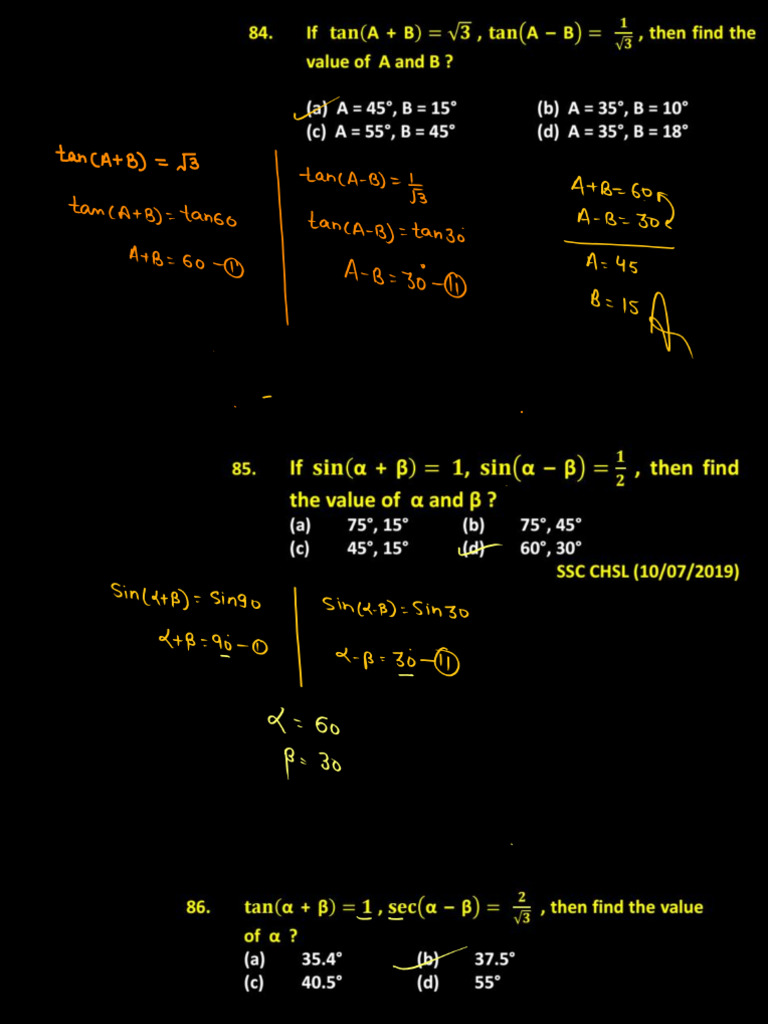 84. If tan(A + B) = √3 , tan(A − B) = 1/√3 , then find the
value of A and B ?
(a) A = 45°, B = 15° (b) A = 35°, B = 10°
(c) A = 55°, B = 45° (d) A = 35°, B = 18°
tan(A+B) = √3
tan(A+B) = tan60
A+B = 60 – (i)
tan(A-B) = 1/√3
tan(A-B) = tan30°
A-B = 30° – (ii)
A+B = 60
A-B = 30
A = 45
B = 15
A
85. If sin(α + β) = 1, sin(α − β) = 1/2 , then find
the value of α and β ?
(a) 75°, 15° (b) 75°, 45°
(c) 45°, 15° (d) 60°, 30°
SSC CHSL (10/07/2019)
Sin(α+β) = Sin90
α+β = 90° – (i)
Sin(α-β) = Sin30
α-β = 30° – (ii)
α = 60
β = 30
86. tan(α + β) = 1 , sec(α − β) = 2/√3 , then find the value
of α ?
(a) 35.4° (b) 37.5°
(c) 40.5° (d) 55°